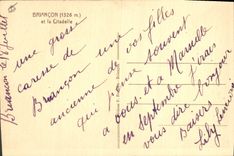 BRIANÇON (1326 m)
et la Citadelle
Briançon le 17 juillet
une grosse
caresse de
Briançon
ancienne
une de vos filles
qui pense souvent
à vous et à Marseille
en Septembre j'irais
vous dire bonjour
Baisers
Lily